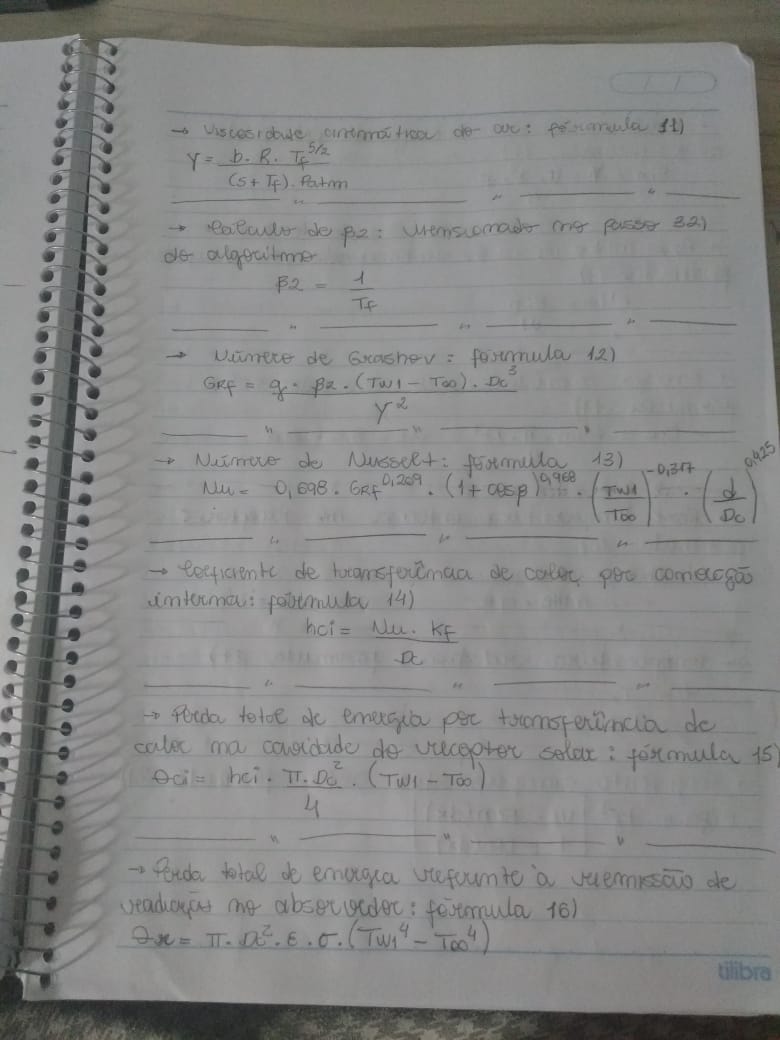 → Viscosidade cinemática do ar: fórmula 11)
γ = b . R . Tf^5/2 / (S + Tf) . Patm
→ Cálculo de β2: mensionado no passo 32)
do algoritmo
β2 = 1 / Tf
→ Número de Grashov: fórmula 12)
GRf = g . β2 . (TW1 - T∞) . Dc^3 / γ^2
→ Número de Nusselt: fórmula 13)
Nu = 0,698 . GRf^0,209 . (1 + cosβ)^0,968 . (TW1 / T∞)^-0,317 . (d / Dc)^0,425
→ Coeficiente de transferência de calor por convecção
interna: fórmula 14)
hci = Nu . Kf / Dc
→ Perda total de energia por transferência de
calor na cavidade do receptor solar: fórmula 15)
Qci = hci . π . Dc^2 / 4 . (TW1 - T∞)
→ Perda total de energia referente à reemissão de
radiação no absorvedor: fórmula 16)
= π . Dc^2 . ε . σ . (TW1^4 - T∞^4)
tilibra